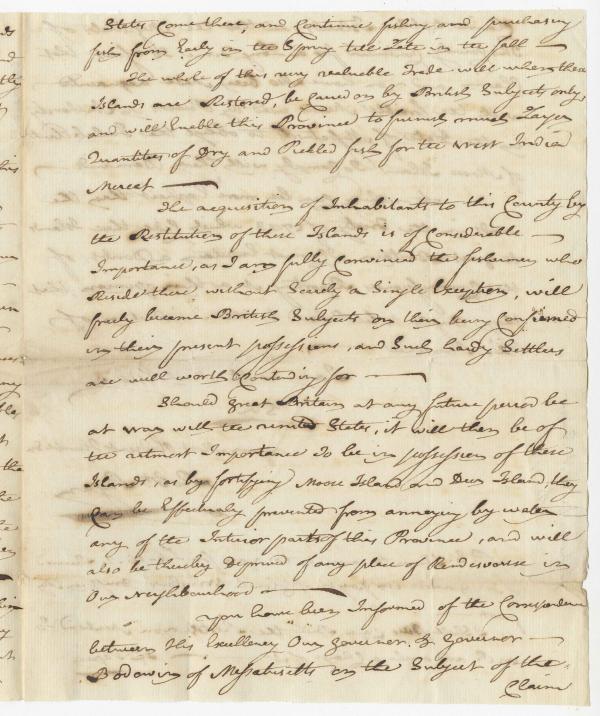 States Come there, and Continue fishing and purchasing
fish from Early in the Spring till Late in the fall —
The whole of this very valuable Trade will when these
Islands are Restored, be Carried on by British Subjects only,
and will Enable this Province to furnish much Larger
Quantities of Dry and Pickled fish for the West India
Market —
The acquisition of Inhabitants to this County by
the Restitution of these Islands is of Considerable —
Importance, as I am fully Convinced the fishermen who
Reside there, without Scarcely a Single Exception, will
freely become British Subjects on their being Confirmed
in their present possessions, and Such hardy Settlers
are well worth Contending for —
Should Great Britain at any future period be
at War with the united States, it will then be of
the utmost Importance to be in possession of these
Islands, as by fortifying Moose Island and Deer Island, they
Can be Effectually prevented from annoying by water
any of the Interior parts of this Province, and will
also be thereby Deprived of any place of Rendezvouse in
Our Neighbourhood —
You have been Informed of the Correspondence
between His Excellency Our Governor, & Governor —
Bodowin of Massachusetts on the Subject of the
Claim